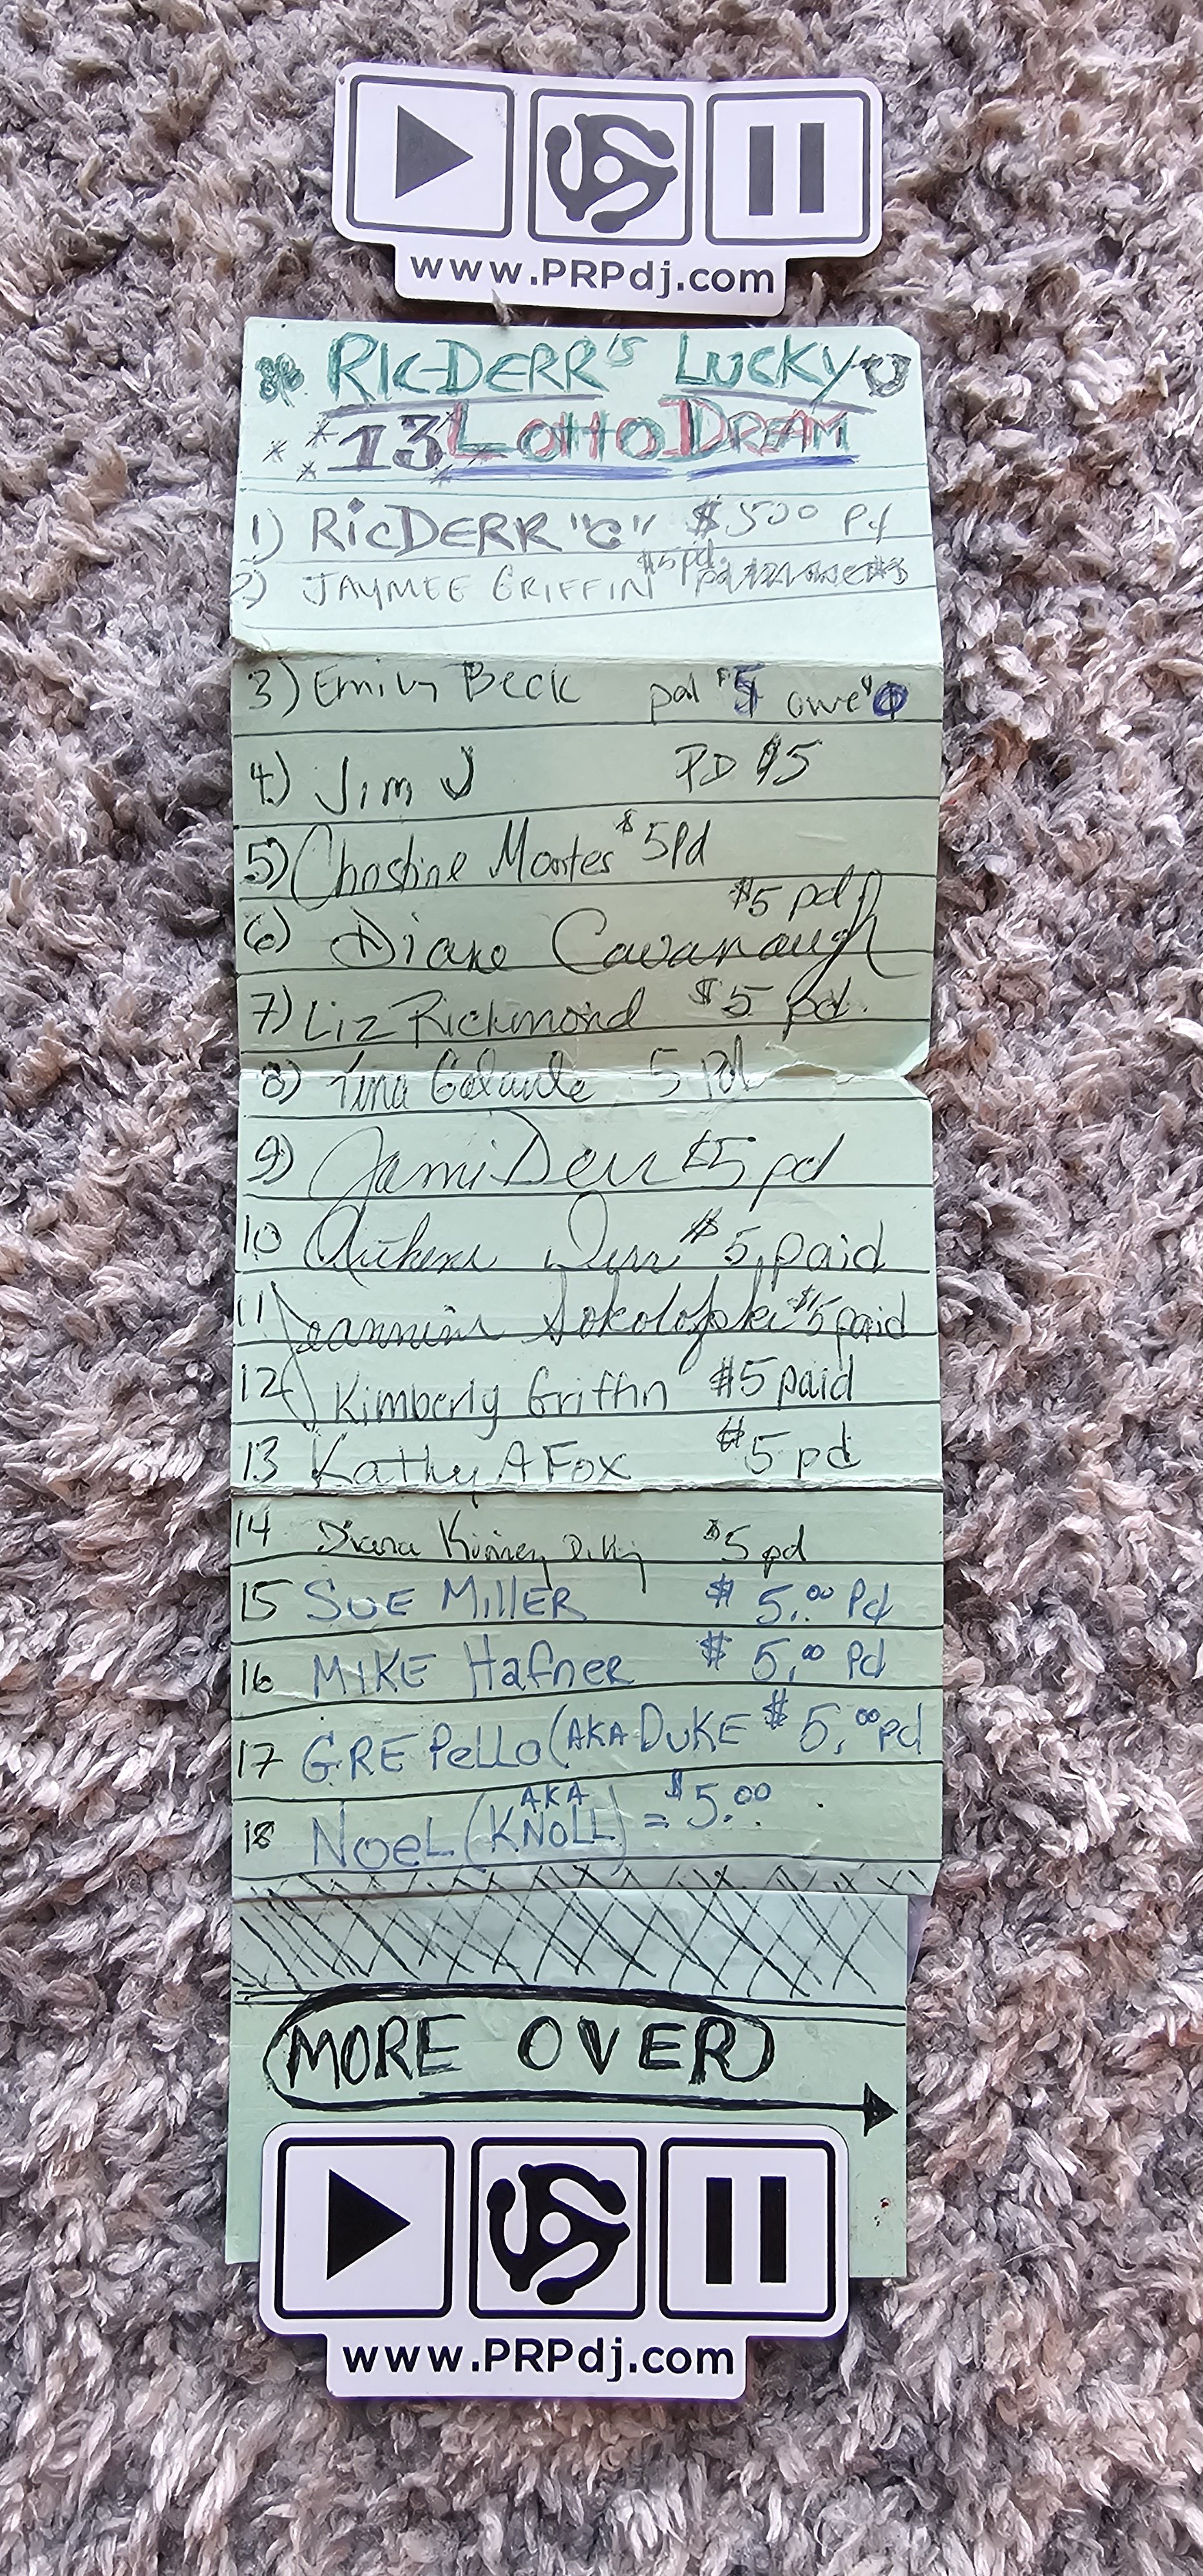 www.PRPdj.com
RICDERR'S LUCKY
13 LOTTO DREAM
1) RICDERR "C" $5.00 Pd
2) JAYMEE GRIFFIN $5 pd.
3) Emily Beck pd $5 owe $0
4) Jim J PD $5
5) Christine Montes $5 Pd
6) Diane Cavanaugh $5 pd
7) Liz Richmond $5 pd.
8) Tina Galante 5 Pd
9) Jami Derr $5 pd
10 Derr $5 paid
11 Jeannine $5 paid
12 Kimberly Griffin $5 paid
13 Kathy A Fox $5 pd
14 Diana Kinney $5 pd
15 SUE MILLER $ 5.00 Pd
16 MIKE Hafner $ 5.00 Pd
17 GRE PeLLO (AKA DUKE $ 5.00 pd
18 NOEL (AKA KNOLL) = $5.00
MORE OVER
www.PRPdj.com